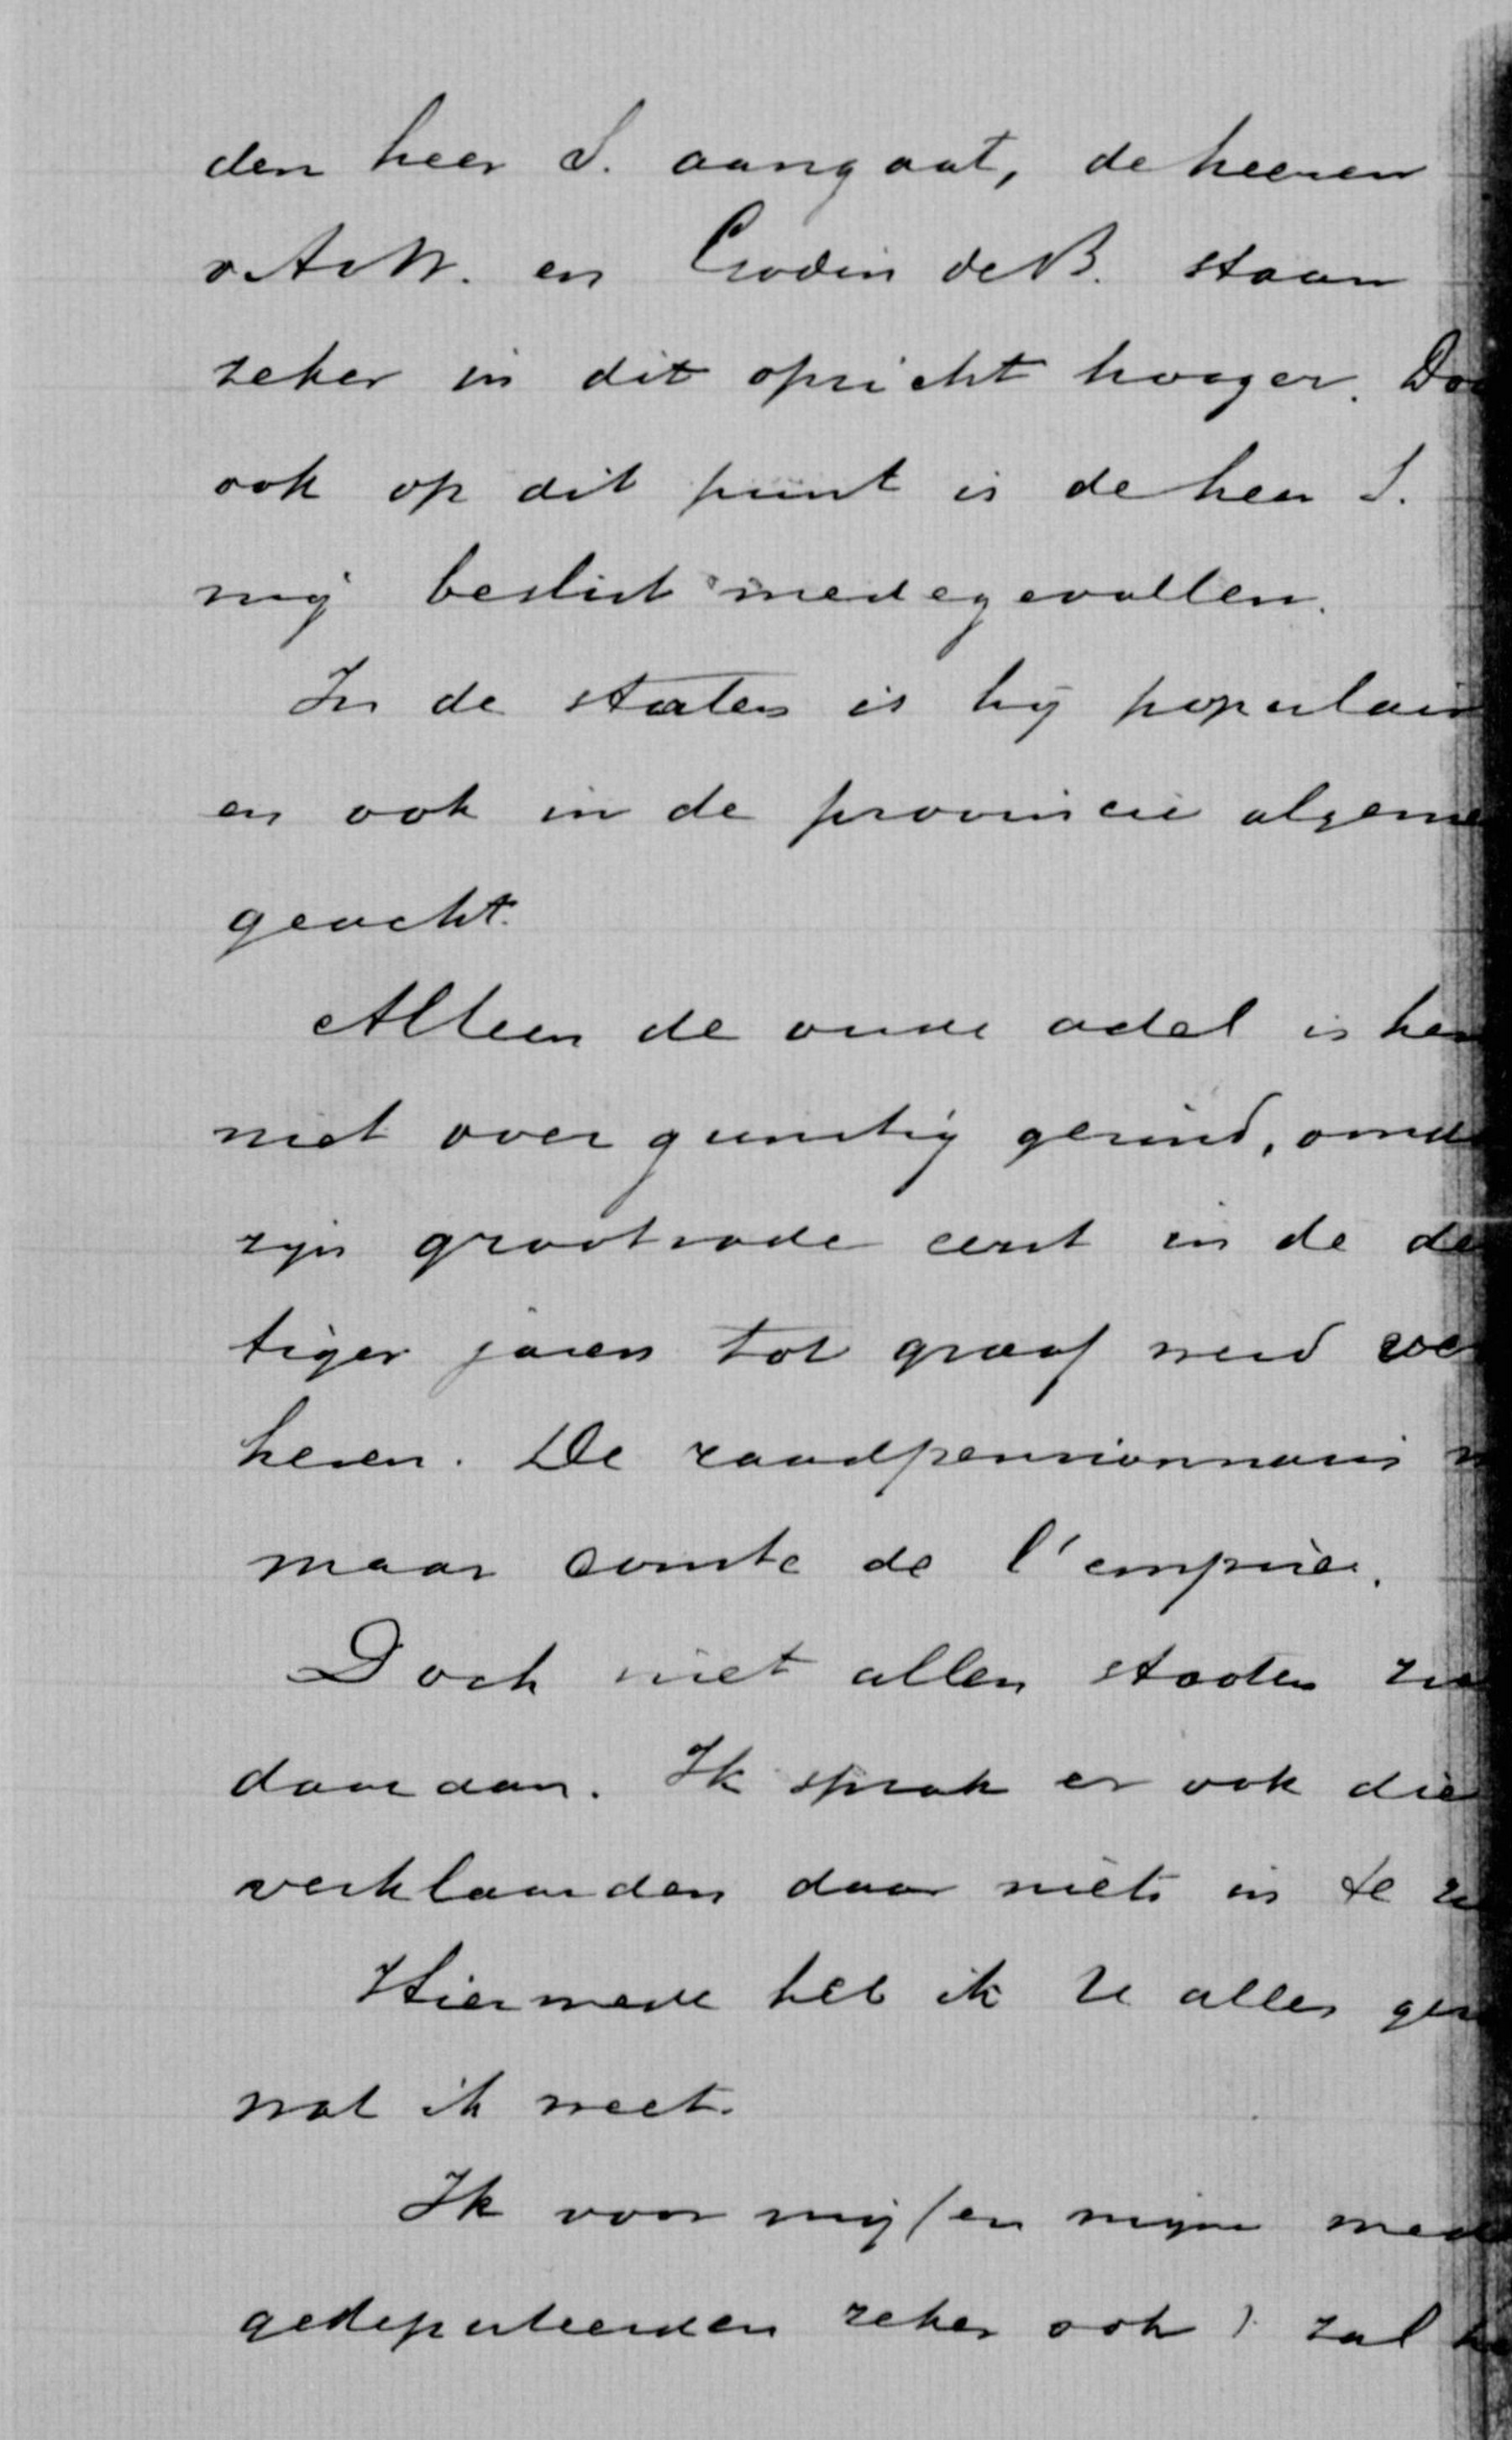 den heer S. aangaat, de heeren
v. A v W. en Godin de B. staan
zeker in dit opzicht hooger. Do
ook op dit punt is de heer S.
mij beslist medegevallen.
In de staten is hij populair
en ook in de provincie algeme
geacht.
Alleen de oude adel is hem
niet over gunstig gezind, omd
zijn grootvader eerst in de de
tiger jaren tot graaf werd ver
heven. De raadpensionnaris w
maar comte de l'empire.
Doch niet allen stooten zi
daar aan. Ik sprak er ook die
verklaarden daar niets in te zi
Hiermede heb ik U alles gez
wat ik weet.
Ik voor mij (en mijne mede
gedeputeerden zeker ook) zal h